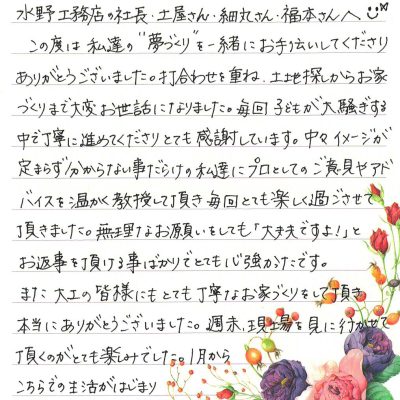 水野工務店の社長・土屋さん・細丸さん・福本さんへ
この度は私達の"夢づくり"を一緒にお手伝いしてくださり
ありがとうございました。打合わせを重ね、土地探しからお家
づくりまで大変お世話になりました。毎回子どもが大騒ぎする
中で丁寧に進めてくださりとても感謝しています。中々イメージが
定まらず分からない事だらけの私達にプロとしてのご意見やアド
バイスを温かく教授して頂き毎回とても楽しく過ごさせて
頂きました。無理なお願いをしても「大丈夫ですよ!」と
お返事を頂ける事ばかりでとても心強かたです。
また大工の皆様にもとても丁寧なお家づくりをして頂き
本当にありがとうございました。週末、現場を見に行かせて
頂くのがとても楽しみでした。1月から
こちらでの生活がはじまり